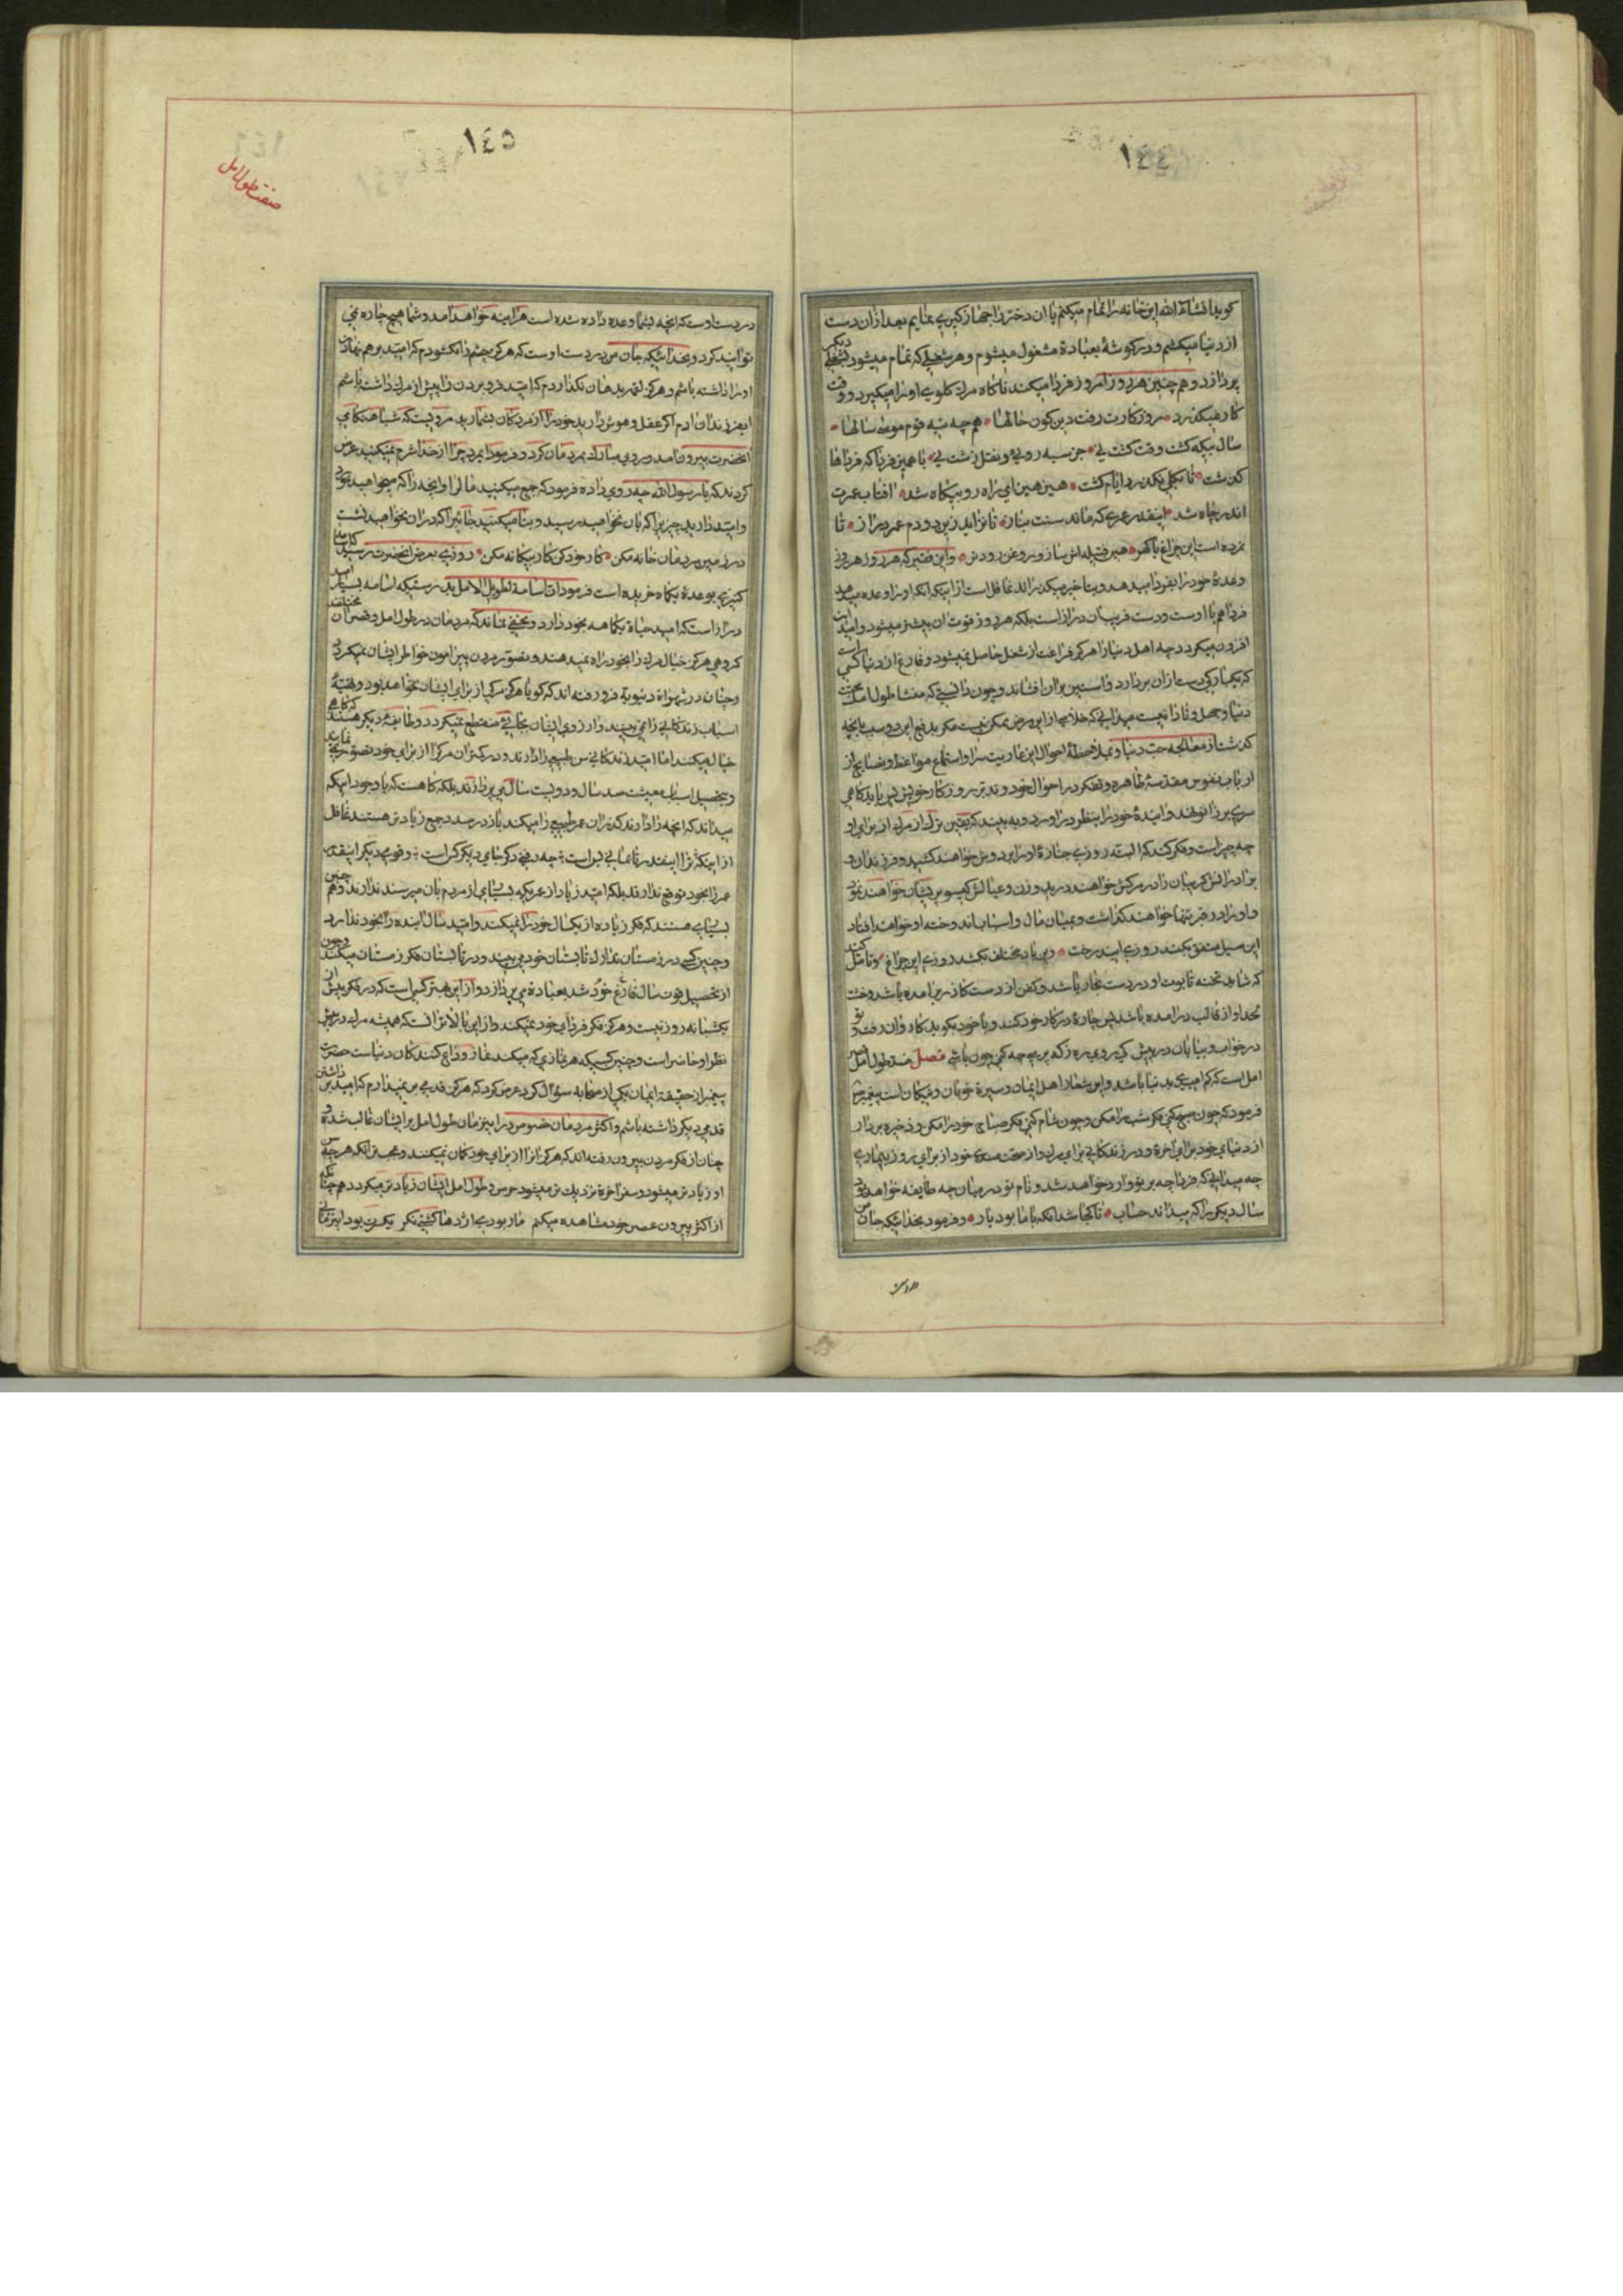 ١٤٤
گوید انشاء الله این خانه را تمام میکنم یا ان دختر را جهاز گیری مینمایم بعد ازان دست
از دنیا میکشم و در گوشهٔ بعبادة مشغول میشوم و هر شغلی که تمام میشود بشغلی دیگر
پردازد و هم چنین هر روز امروز فردا میکند تا ناگاه مرك گلوی او را میگیرد و وقت
کار میگذرد روز کارت رفت دین کون حالها هم چه تیه قوم موسی سالها
سال بیگه گشت وقت کشت نی جز سیه روئی و فعل زشت نی با همین فردا که فرداها
گذشت تا بکلی نگذرد ایام کشت هین هین ای راه رو بیگاه شد افتاب عمرت
اندر چاه شد اینقدر عمری که ماندستت بباز تا بزاید زین دو دم عمر دراز تا
نمرده است این چراغ با گهر هین فتیله اش ساز و روغن زودتر و این فقیر که هر روز
وعدهٔ خود را بفردا میدهد و بتاخیر میگذراند غافل است از اینکه انکه او را وعده میدهد
فردا هم با اوست و دست فریبش دراز است بلکه هر روز قوت ان بیشتر میشود و امید
افزون میگردد چه اهل دنیا را هرگز فراغت از شغل حاصل نمیشود و فارغ از دنیا کسی است
که یکبارگی دست ازان بردارد و استین بران افشاند و چون دانستی که منشا طول امل محبت
دنیا و جهل و نادانیست میدانی که خلاصی از این مرض ممکن نیست مگر بدفع این دو سبب بانچه
گذشت از معالجه حب دنیا و بملاحظهٔ احوال این عاریت سرا و استماع مواعظ و نصایح از
ارباب نفوس مقدسهٔ طاهره و تفکر در احوال خود و تدبر روزگار خویش پس باید گاهی
سری بزانو نهد و ایندهٔ خود را بنظر در اورد و به بیند که یقین تر از مرك از برای او
چه چیز است و فکر کند که البته روزی جنازهٔ او را بر دوش خواهند کشید و فرزندان و
برادرانش گریبان را در مرگش خواهند درید و زن و عیالش گیسو پریشان خواهند نمود
و او را در قبر تنها خواهند گذاشت و بمیان مال و اسباب اندوخته او خواهند افتاد
این سیل متفق بکند روزی این درخت وین باد مختلف بکشد روزی این چراغ و تامل کند
که شاید تخته تابوت او در دست نجار باشد و کفن از دست کازر بر امده باشد و خشت
لحد او از قالب در امده باشد پس چارهٔ در کار خود کند و با خود بگوید کاروان رفت و تو
در خواب و بیابان در پیش کی روی ره ز که پرسی چه کنی چون باشی فصل ضد طول امل
امل است که کم امیدی بدنیا باشد و این شعار اهل ایمان و سیرة خوبان و نیکان است پیغمبر
فرمود که چون صبح کنی فکر شب را مکن و چون شام کنی فکر صباح خود را مکن و ذخیره بردار
از دنیای خود برای اخرة و در زندگانی برای مرك و از صحت بدن خود از برای روز بیماری
چه میدانی که فردا چه بر تو وارد خواهد شد و نام تو در میان چه طایفه خواهد بود
سال دیگر را که میداند حساب تا کجا شد انکه با ما بود پار و فرمود بخدائیکه جان من
١٤٥
صفت طول امل
در دست اوست که انچه بشما وعده داده شده است هراینه خواهد امد و شما هیچ چاره نمی
توانید کرد و بخدائیکه جان من در دست اوست که هرگز چشم را نگشودم که امید بر هم نهادن
او را داشته باشم و هرگز لقمه بدهان نگذاردم که امید فرو بردن را پیش از مرك داشته باشم
ایفرزندان ادم اگر عقل و هوش دارید خود را از مردگان بشمارید مرویست که شبا هنگامی
انحضرت بیرون امد و روی مبارك بمردمان کرد و فرمود ایمردم چرا از خدا شرم نمیکنید عرض
کردند که یا رسول الله چه روی داده فرمود که جمع میکنید مالی را و انچه را که نخواهید خورد
و امید دارید چیزیرا که بان نخواهید رسید و بنا میکنید جائیرا که دران نخواهید نشست
در زمین مردمان خانه مکن کار خود کن کار بیگانه مکن روزی بعرض انحضرت رسید که اسامه
کنیزی بوعدهٔ یکماه خریده است فرمود ان اسامة لطویل الامل بدرستیکه اسامه بسیار امید
دراز است که امید حیاة یکماهه بخود دارد و مخفی نماند که مردمان در طول امل و قصر ان مختلفند
گروهی هرگز خیال مرك را بخود راه نمیدهند و تصور مردن پیرامون خواطر ایشان نمیگردد
و چنان در شهواة دنیویة فرو رفته اند که گویا هرگز مرگی از برای ایشان نخواهد بود و تهیهٔ
اسباب زندگانی را می بینند و ارزوی ایشان بجائی منقطع نمیگردد و طایفهٔ دیگر هستند که گاهی
خیال میکنند اما امید زندگانی سن طبیعی را دارند و در یکتران مرك را از برای خود تصور نمی نمایند
و بتحصیل اسباب معیشت صد سال و دویست سال می پردازند بلکه گاه هست که با وجود اینکه
میداند که انچه را دارند گذران عمر طبیعی را میکند باز در صدد جمع زیادتر هستند غافل
از اینکه ترا اینقدر تا بمانی بس است چه رفتی دگر جای دیگر کس است و قومی دیگر اینقدر
عمر را بخود توقع ندارند بلکه امید زیاد از عمریکه بسیاری از مردم بان میرسند ندارند و هم چنین
بسیاری هستند که فکر زیاده از یکسال خود را نمیکنند و امید سال اینده را بخود ندارد
و چنین کسی در زمستان تدارك تابستان خود می بیند و در تابستان فکر زمستان میکند و چون
از تحصیل قوت سال فارغ خود شد بعبادة می پردازد و از این بهتر کسی است که در فکر پیش از
یکشبانه روز نیست و هرگز فکر فردای خود نمیکند و از این بالاتر انست که همیشه مرك در پیش
نظر او حاضر است و چنین کسیکه هر نمازی که میکند نماز وداع کنندگان دنیاست حضرت
پیغمبر از حقیقت ایمان یکی از صحابه سؤال کرد عرض کرد که هرگز قدمی بر نمیدارم که امید برداشتن
قدمی دیگر داشته باشم و اکثر مردمان خصوص در این زمان طول امل بر ایشان غالب شده و
چنان از فکر مردن بیرون رفته اند که هرگز انرا از برای خود گمان نمیکنند و عجب تر انکه هر چه سن
او زیادتر میشود و سفر اخرة نزدیك تر میشود حرص و طول امل ایشان زیادتر میگردد هم چنانکه
از اکثر پیردون عصر خود مشاهده میکنم مار بودی اژدها گشتی مگر یکسرت بود این زمانی